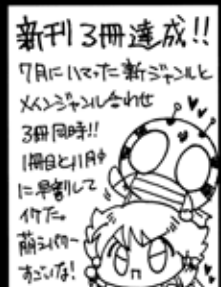 新刊3冊達成!!
7月にハマった新ジャンルと
メインジャンル合わせ
3冊同時!!
1冊目と11月中
に早割して
イケた。
萌えパワー
すごいな!